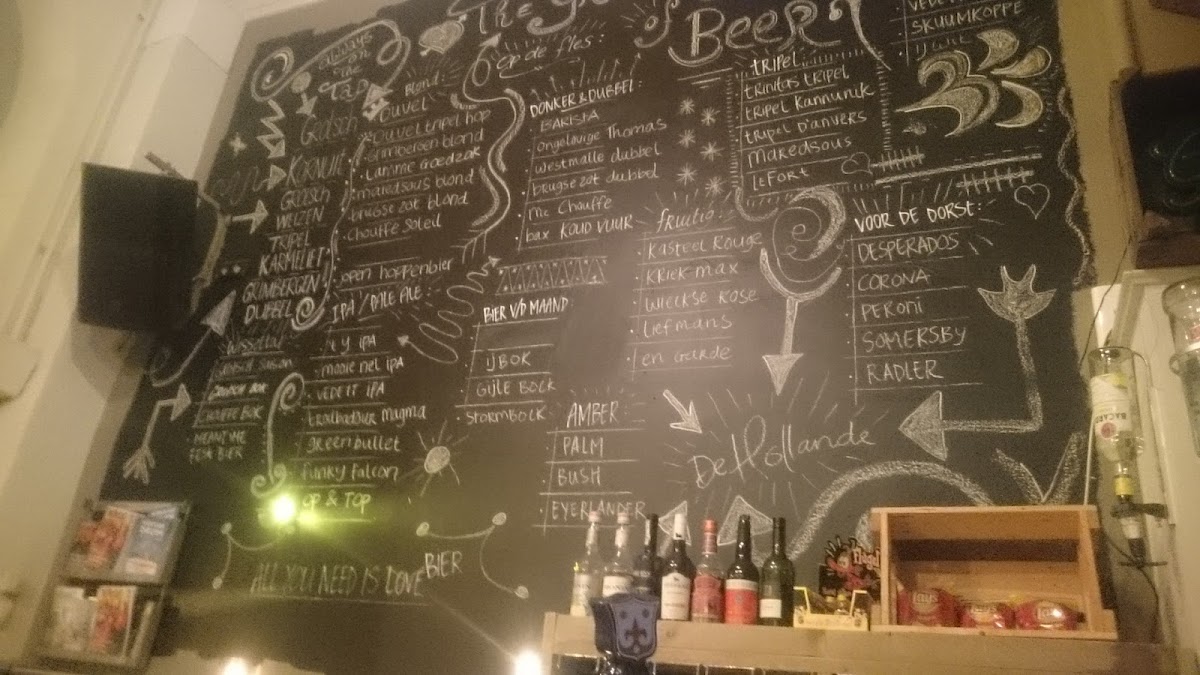 of
BEER
always
on
the
Tap
Grolsch
KORNUIT
GROLSCH
WEIZEN
TRIPEL
KARMELIET
GRIMBERGEN
DUBBEL
CHOUFFE BOK
Blond:
DUVEL
Duvel tripel hop
Grimbergen blond
Lamme Goedzak
maredsous blond
brugse zot blond
Chouffe Soleil
open hoppenbier
IPA / PALE ALE:
mooie nel IPA
VEDETT IPA
troubadour magma
green bullet
funky falcon
OP & TOP
Op de fles:
DONKER & DUBBEL:
BARISTA
Ongelovige Thomas
Westmalle dubbel
brugse zot dubbel
Mc Chouffe
bax KOUD VUUR
BIER V/D MAAND:
IJBOK
GIJLE BOCK
STORMBOCK
AMBER:
PALM
BUSH
EYERLANDER
fruitig:
KASTEEL ROUGE
KRIEK max
Wieckse Rose
Liefmans
en Garde
tripel:
trinitas tripel
tripel Kannunik
tripel D'anvers
Maredsous
LEFORT
SKUUMKOPPE
VOOR DE DORST:
DESPERADOS
CORONA
PERONI
SOMERSBY
RADLER
De Hollande
ALL YOU NEED IS LOVE BIER
BACARDI
Lay's
Lay's
Lay's